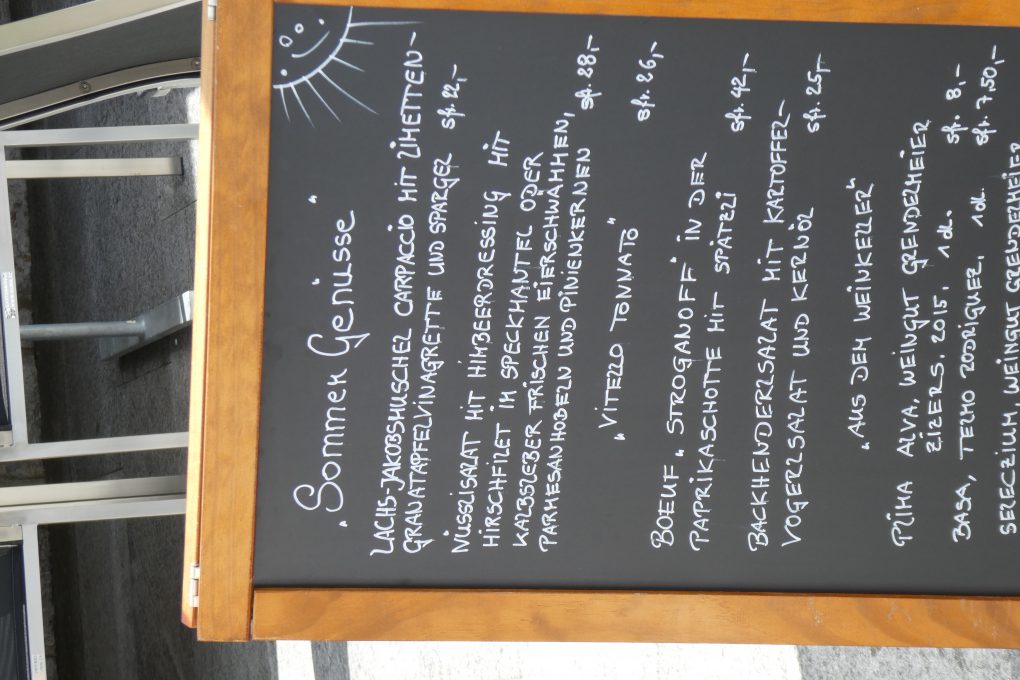 „Sommer Genüsse"
LACHS-JAKOBSMUSCHEL CARPACCIO MIT LIMETTEN-
GRANATAPFELVINAGRETTE UND SPARGEL sfr. 22,-
NÜSSLISALAT MIT HIMBEERDRESSING MIT
HIRSCHFILET IM SPECKMANTEL ODER
KALBSLEBER FRISCHEN EIERSCHWÄMMEN,
PARMESANHOBELN UND PINIENKERNEN sfr. 28,-
„VITELLO TONNATO" sfr. 26,-
BOEUF „STROGANOFF" IN DER
PAPRIKASCHOTTE MIT SPÄTZLI sfr. 42,-
BACKHENDERLSALAT MIT KARTOFFEL-
VOGERLSALAT UND KERNÖL sfr. 25,-
„AUS DEM WEINKELLER"
PRIMA ALVA, WEINGUT GRENDELMEIER
ZIZERS. 2015, 1 dl. sfr. 8,-
BASA, TELMO RODRIGUEZ, 1 dl. sfr. 7,50,-
SELECZIUM, WEINGUT GRENDELMEIER